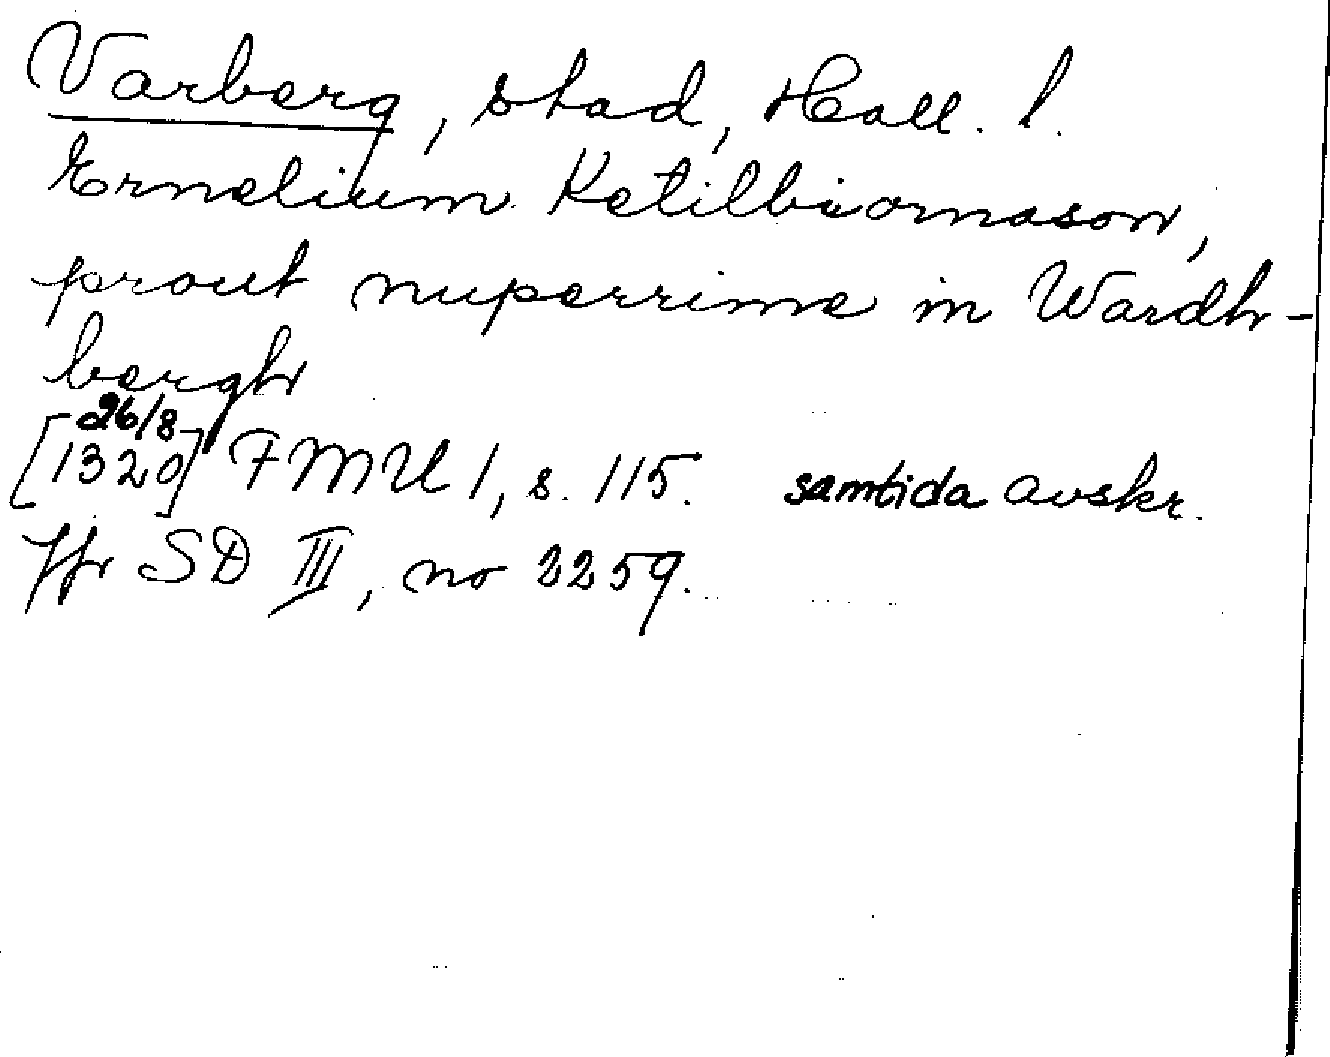 Varberg, stad, Hall. l.
Ernelium Ketilbiornason,
prout nuperrime in Wardh-
bergh
26/8
[1320] FMU 1, s. 115. samtida avskr.
Jfr SD III, no 2259.